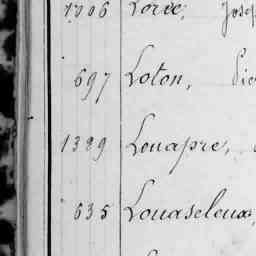 1706 Lorée, Josep
697 Loton, Pie
1389 Louapre,
635 Louaseloux,